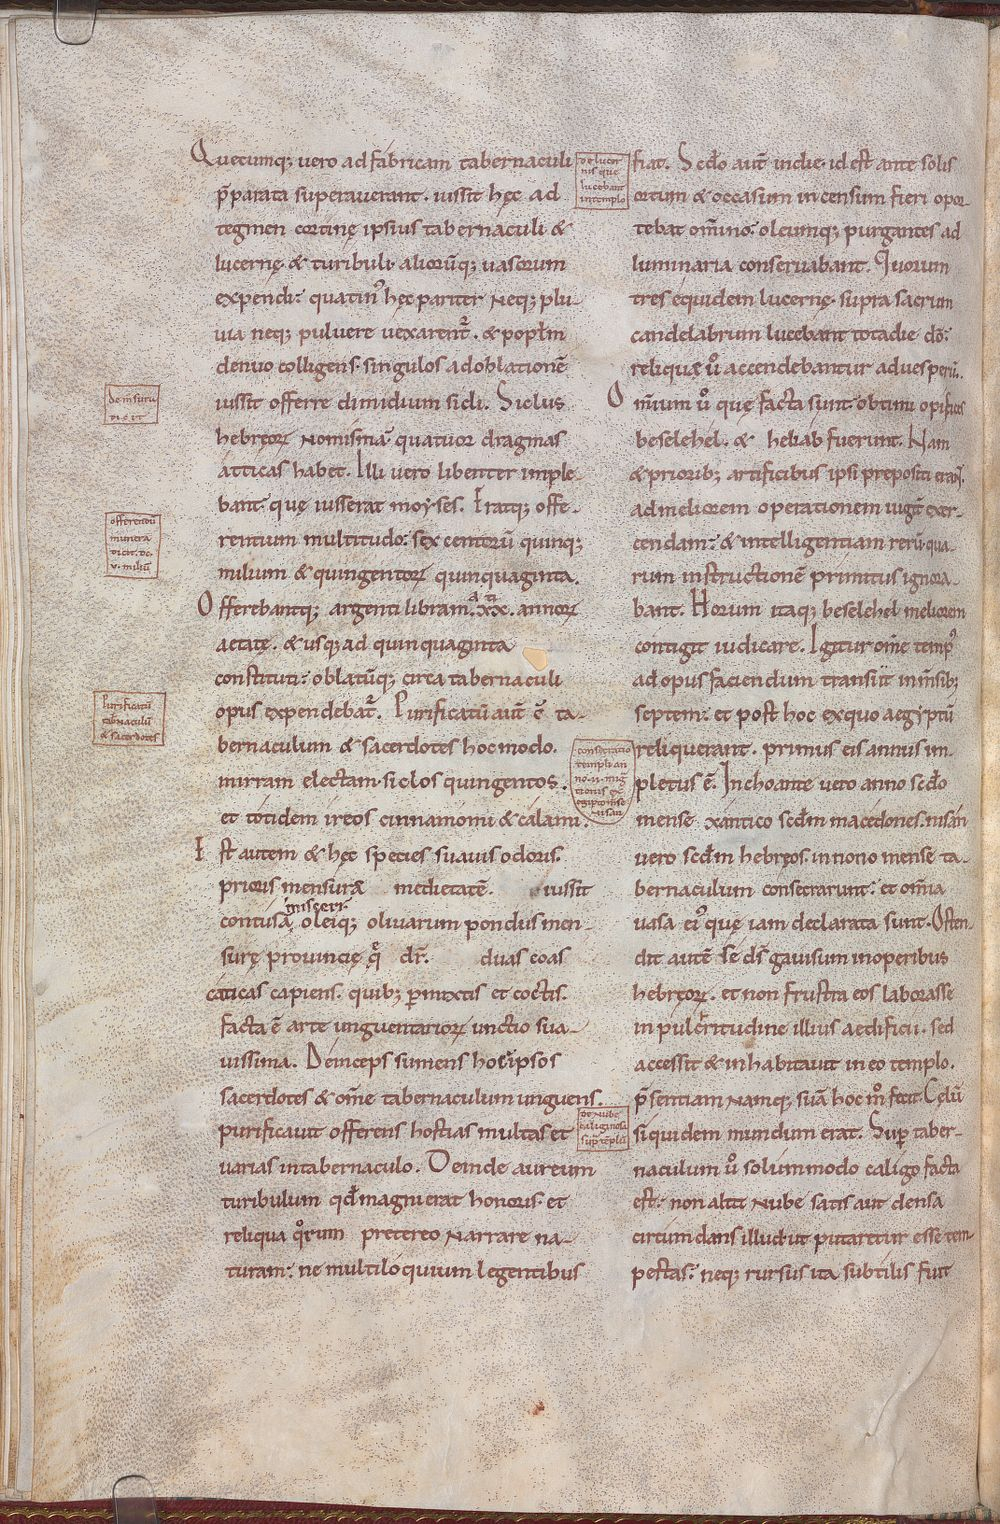 Quecumq; uero ad fabricam tabernaculi
p̄parata superauerant. iussit hęc ad
tegmen cortinę ipsius tabernaculi &
lucernę & turibuli aliorūq; uasorum
expendi: quatin᾽ hęc pariter neq; plu-
uia neq; puluere uexarent᾽. & poplm̄
denuo colligens. singulos ad oblationē
iussit offerre dimidium sicli. Siclus
hebręoꝝ nomisma quatuor dragmas
atticas habet. Illi uero libenter imple-
bant quę iusserat moyses. Eratq; offe-
rentium multitudo: sexcentorū quinq;
milium & quingentoꝝ quinquaginta.
Offerebantq; argenti libram. a xx.ti annoꝝ
aetatę. & usq; ad quinquaginta
constituti: oblatūq; circa tabernaculi
opus expendebat᾽. Purificatū aut̄ ē ta-
bernaculum & sacerdotes hoc modo.
mirram electam. siclos quingentos.
et totidem ireos cinnamomi & calami.
Est autem & hęc species suauis odoris.
prioris mensuræ medietatē. iussit
misceri.
contusā oleiq; oliuarum pondus men-
surę prouincię q̄ dr̄. duas coas
caticas capiens. quib; ꝑmixtis et coctis.
facta ē arte unguentarioꝝ unctio sua-
uissima. Deinceps sumens hoc ipsos
sacerdotes & om̄e tabernaculum unguens.
purificauit offerens hostias multas et
uarias in tabernaculo. Deinde aureum
turibulum qđ magni erat honoris. et
reliqua qͦrum pretereo narrare na-
turam: ne multiloquium legentibus
de mensura
offerentiū
munera
dicit. dc.
v. miliū
Purificatū
tabnaculū
& sacerdotes
de lucer
nis que
lucebant
in templo
consecratio
templi an
no .ii. mig
tionis ex
egipto mse
nisan
de nube
caliginosa
suꝑ teplū
fiat. Scđo aut̄ in die. id est ante solis
ortum & occasum incensum fieri opor-
tebat om̄ino: oleumq; purgantes ad
luminaria conseruabant. Quorum
tres equidem lucernę. supra sacrum
candelabrum lucebant tota die dō:
reliquæ u᾽ accendebantur ad uesperū.
Omnium u᾽ quę facta sunt. obtimi opifices
beselehel. & heliab fuerunt. Nam
& priorib; artificibus ipsi prepositi erant.
ad meliorem operationem iugit exer-
cendam: & intelligentiam rerū. qua-
rum instructionē primitus ignora-
bant. Horum itaq; beselehel meliorem
contigit iudicare. Igitur om̄e temp᾽
ad opus faciendum transiit in m̄sib;
septem: et post hoc ex quo aegyptū
reliquerant. primus eis annus im-
pletus ē. Inchoante uero anno scđo
mense xantico scđm macedones. nisan
uero scđm hebręos. in nono mense ta-
bernaculum consecrarunt: et om̄ia
uasa ei᾽ quę iam declarata sunt. Osten-
dit autē se ds̄ gauisum in operibus
hebręoꝝ. et non frustra eos laborasse
in pulcritudine illius aedificii. sed
accessit & inhabitauit in eo templo.
p̄sentiam namq; suā hoc mͦ fecit. Cęlū
siquidem mundum erat. Suꝑ taber-
naculum u᾽ solummodo caligo facta
est: non alut nube satis aut densa
circumdans illud. ut putaretur esse tem-
pestas: neq; rursus ita subtilis fuit